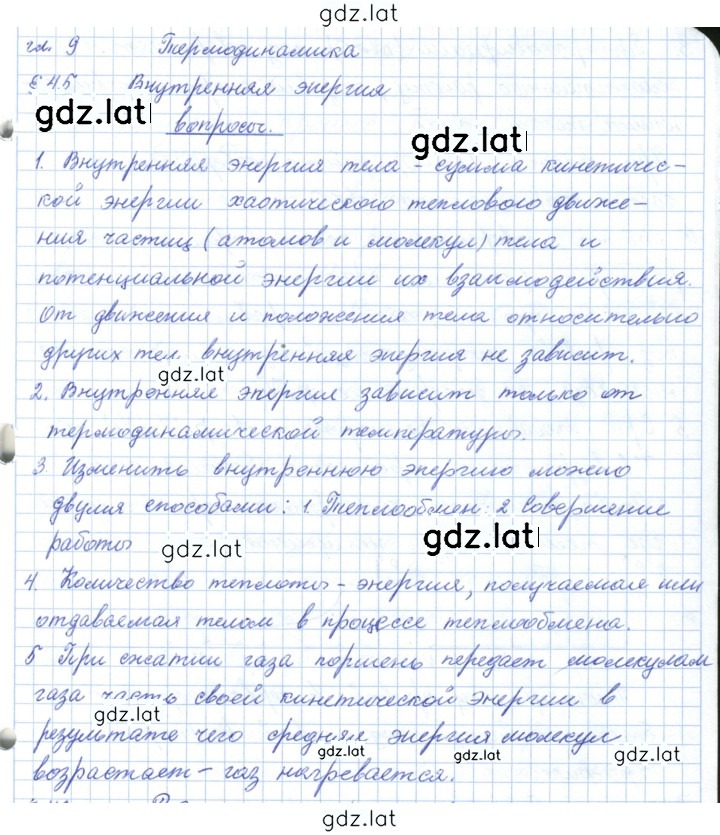 gdz.lat
гл. 9 Термодинамика
§ 45 Внутренняя энергия
gdz.lat
вопросы.
gdz.lat
1. Внутренняя энергия тела - сумма кинетичес-
кой энергии хаотического теплового движе-
ния частиц (атомов и молекул) тела и
потенциальной энергии их взаимодействия.
От движения и положения тела относительно
других тел внутренняя энергия не зависит.
gdz.lat
2. Внутренняя энергия зависит только от
термодинамической температуры.
3. Изменить внутреннюю энергию можно
двумя способами: 1. Теплообмен. 2 Совершение
работы
gdz.lat
gdz.lat
4. Количество теплоты - энергия, получаемая или
отдаваемая телом в процессе теплообмена.
5 При сжатии газа поршень передает молекулам
газа часть своей кинетической энергии в
gdz.lat
результате чего средняя энергия молекул
gdz.lat
gdz.lat
gdz.lat
возрастает - газ нагревается.
gdz.lat